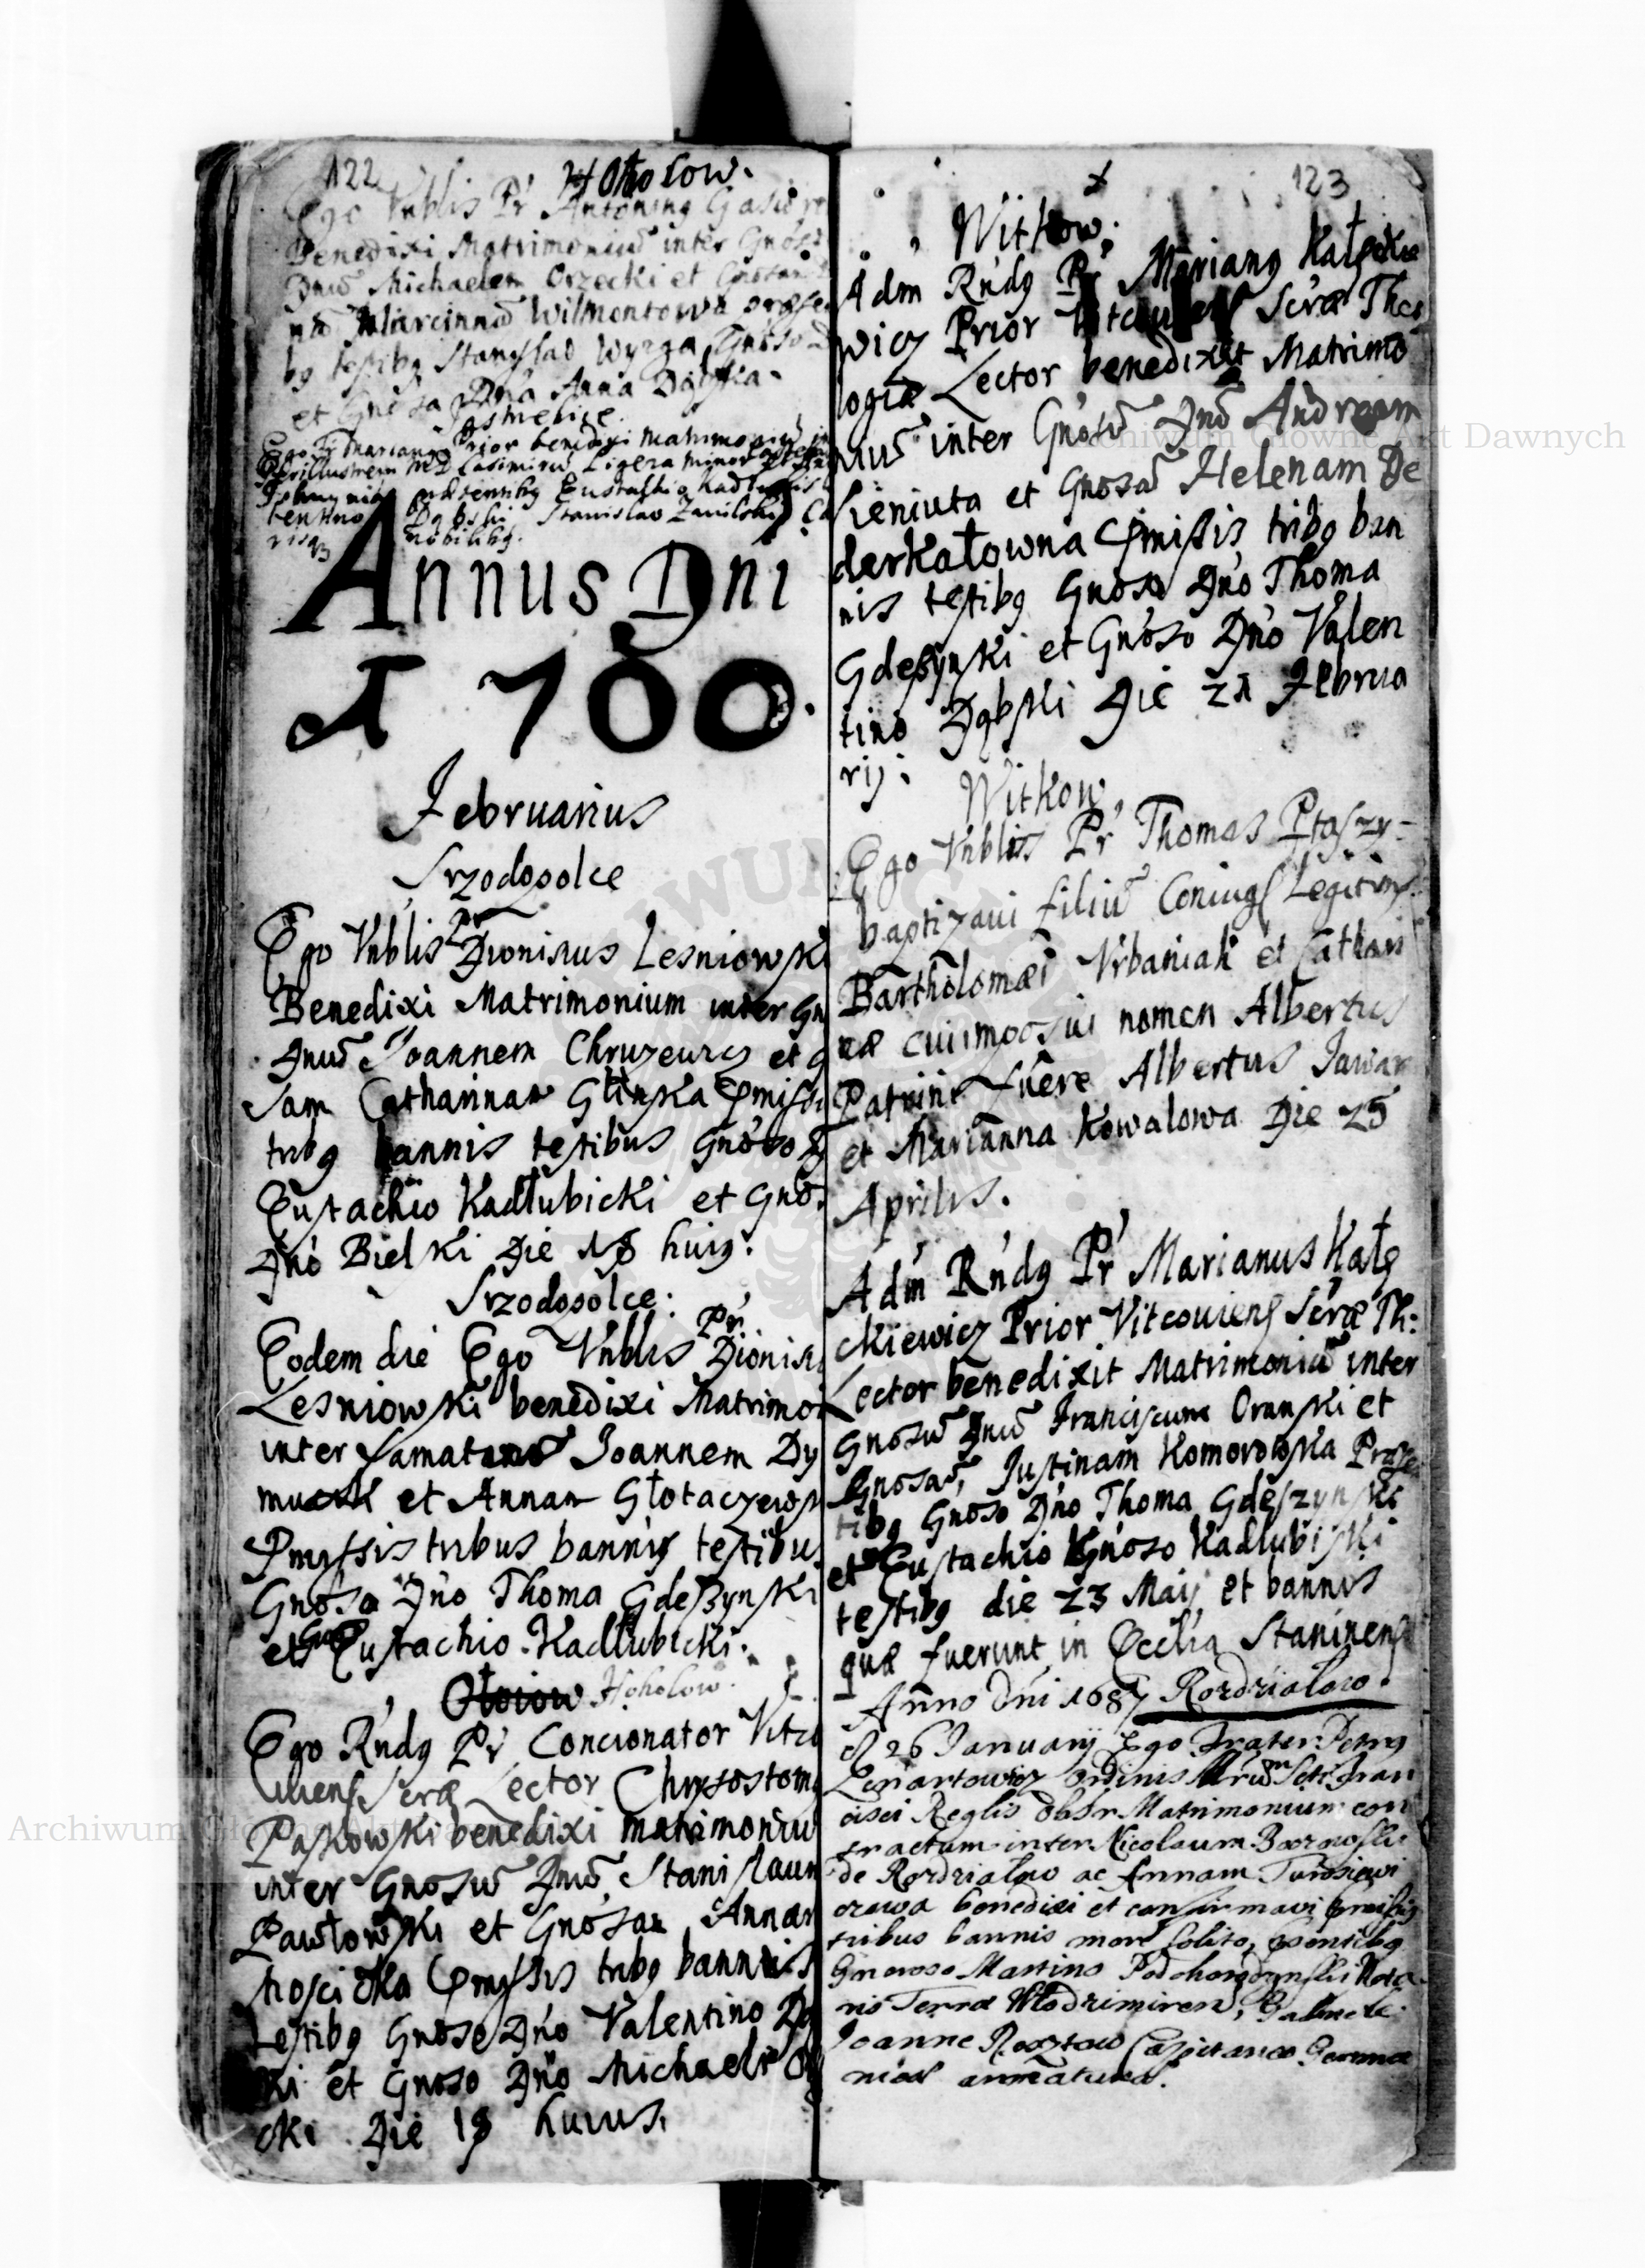 122
Hoħolow.
Ego Vnblis Pr Antoning
Benedixi Matrimoniū inter Gnōs
Dnū Michaelem Orzecki et Gnosan
Marcinnā Wilmontowa præse
bg testibg Stanislao Wyrga Gnōso D
et Gnōsa Dna Anna Dąbska
Ego Pr Mariang Prior benedixi Matrimoniū in
Perillustrem MD Casimirū Ligęza Minor
præsentibg Eustachio Kadłubis
Dąbski Stanislao Zanilski
nobilibg.
Annus Dni
1700.
Februarius
Srzodopolce
Ego Vnblis Pr Dionisius Lesniowski
Benedixi Matrimonium inter Gn
Dnū Joannem Chruzewicz et G
sam Catharinam Glinska Pmissi
tribg bannis testibus Gnōso D
Eustachio Kadłubicki et Gnō
Dno Bielki Die 18 huig.
Srzodopolce:
Eodem die Ego Vnblis Pr Dionisi
Lesniowski benedixi Matrimo
inter famatum Joannem Dy
et Annam Głotaczews
Pmissis tribus bannis testibu
Gnōso Dno Thoma Gdeszynski
et Gnoso Eustachio Kadlubicki.
Ołoiow Hoholow.
Ego Rndg Pr Concionator Vitco
uiens Scræ Lector Chrysostomg
Paskowski benedixi matrimoniū
inter Gnosū Dnū Stanislaum
Pawłowski et Gnōsam Annam
Pmissis tribg bannis
testibg Gnoso Dno Valentino Dą
ki et Gnoso Dno Michaele O
cki Die 18 huius.
123
Witkow.
Adm Rndg Pr Mariang Kałęckie
wicz Prior Scræ Theo
logiæ Lector benedixit Matrimo
niū inter Gnosū Dnū Andream
Sieniuta et Gnosā Helenam De
derkałowna Pmissis tribg ban
nis testibg Gnoso Dno Thoma
Gdeszynski et Gnōso Dno Valen
tino Dąbski Die 21 Februa
rij.
Witkow,
Ego Vnblis Pr Thomas Ptaszy-
baptizaui filiū Coniugs Legitims
Bartholomæi Vrbaniak et Cathari
næ cui imposui nomen Albertus
Patrini fuere Albertus Jawor
et Marianna Kowalowa Die 25
Aprilis.
Adm Rndg Pr Marianus Kałę
ckiewicz Prior Vitcouiens Scræ Th:
Lector benedixit Matrimoniū inter
Gnosū Dnū Franciscum Oranski et
Gnosā Justinam Komorowska Præse
tibg Gnoso Dno Thoma Gdeszynski
et Eustachio Gnoso Kadlubiski
testibg die 23 Maij et bannis
quæ fuerunt in Ecclia Staninens
Anno Dni 1687 Rozdziałow.
d 26 Januarij Ego Frater Petrg
Lenartowicz Ordinis Mrū Scti Fran
cisci Reglis Obsr Matrimonium con
tractum inter Nicolaum
de Rozdzialow ac Annam
benedixi et confirmavi pmissis
tribus bannis more solito, psentibg
Generoso Martino Podhorodynski Nota
rio Terræ Włodzimirens, Gabriele
Joanne Capitaneo Germa